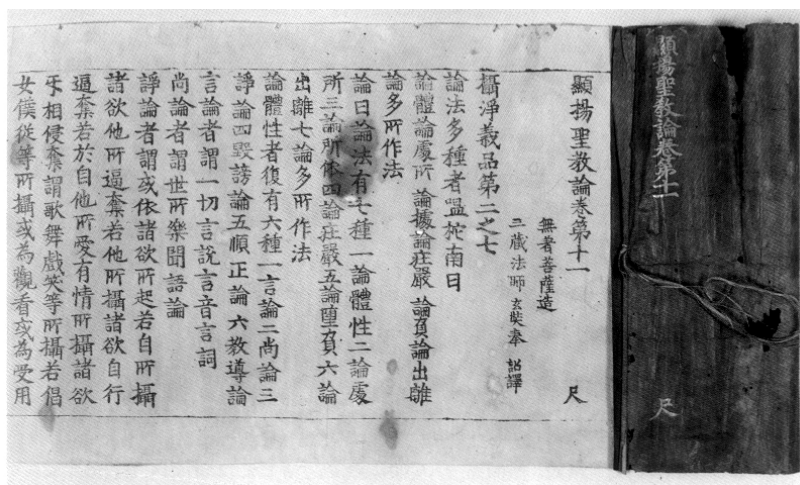 顯揚聖教論卷第十一
尺
顯揚聖教論卷第十一 尺
無著菩薩造
三藏法師玄奘奉 詔譯
攝淨義品第二之七
論法多種者嗢柁南曰
論體論處所 論據論莊嚴 論負論出離
論多所作法
論曰論法有七種一論體性二論處
所三論所依四論莊嚴五論墮負六論
出離七論多所作法
論體性者復有六種一言論二尚論三
諍論四毀謗論五順正論六教導論
言論者謂一切言說言音言詞
尚論者謂世所樂聞語論
諍論者謂或依諸欲所起若自所攝
諸欲他所逼奪若他所攝諸欲自行
逼奪若於自他所愛有情所攝諸欲
互相侵奪謂歌舞戲笑等所攝若倡
女僕從等所攝或為觀看或為受用